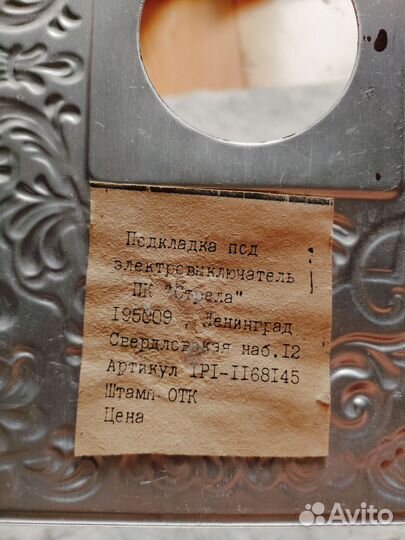 Подкладка под
электровыключатель
ПК "Стрела"
195009 , Ленинград
Свердловская наб.12
Артикул IPI-II68I45
Штамп ОТК
Цена
Avito